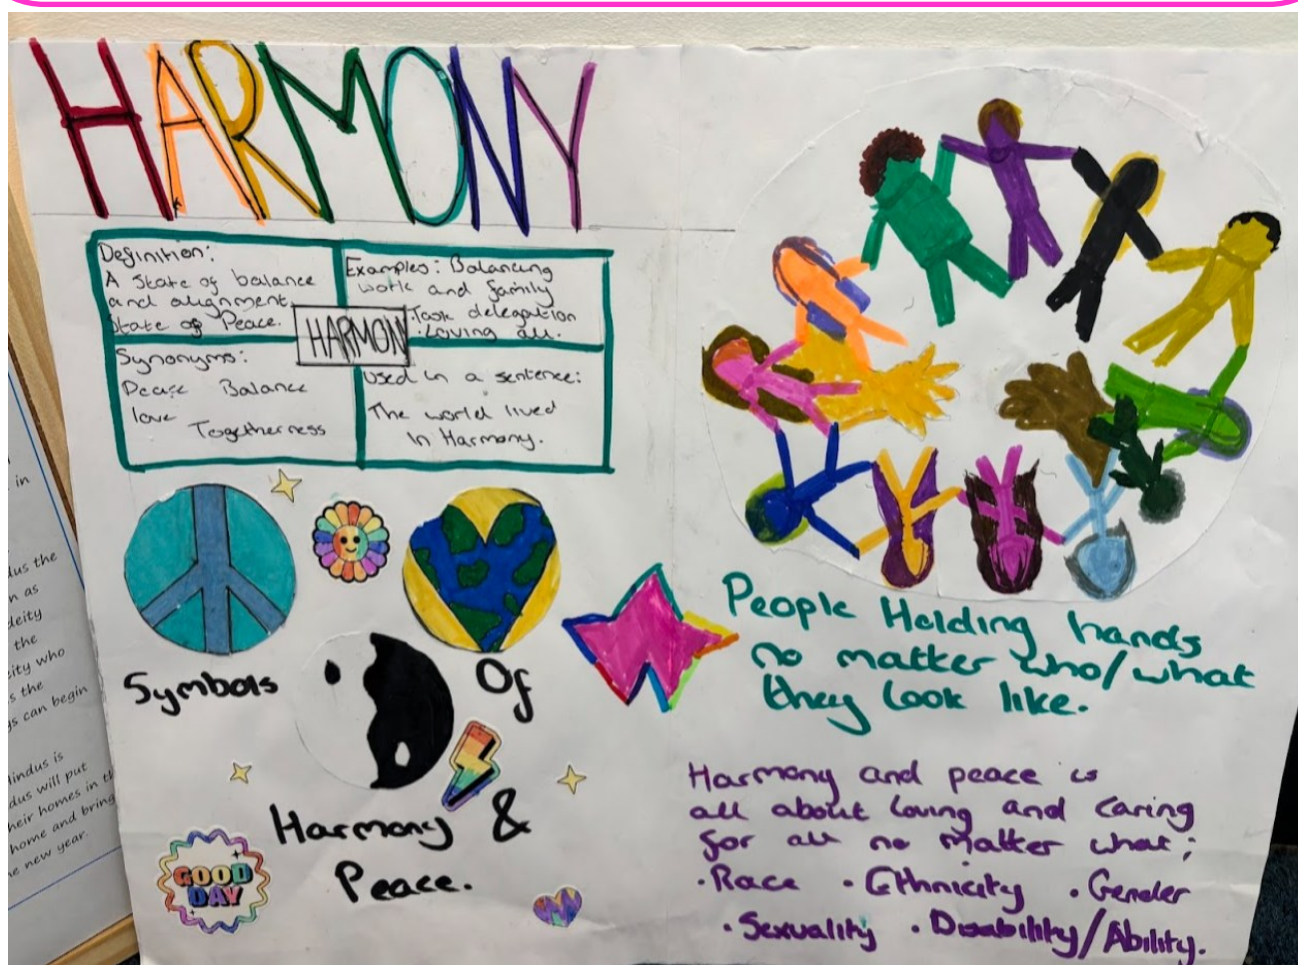 HARMONY
Definition:
A State of balance
and alignment.
State of Peace.
Examples: Balancing
work and family
·Task delegation
·Loving all.
HARMONY
Synonyms:
Peace Balance
love
Togetherness
Used in a sentence:
The world lived
in Harmony.
Symbols Of
Harmony &
Peace.
GOOD
DAY
People Holding hands
no matter who/what
they look like.
Harmony and peace is
all about loving and caring
for all no matter what;
·Race ·Ethnicity ·Gender
·Sexuality ·Disability/Ability.
in
dus the
n as
deity
the
eity who
s the
gs can begin
Hindus is
dus will put
heir homes in th
home and bring
e new year.